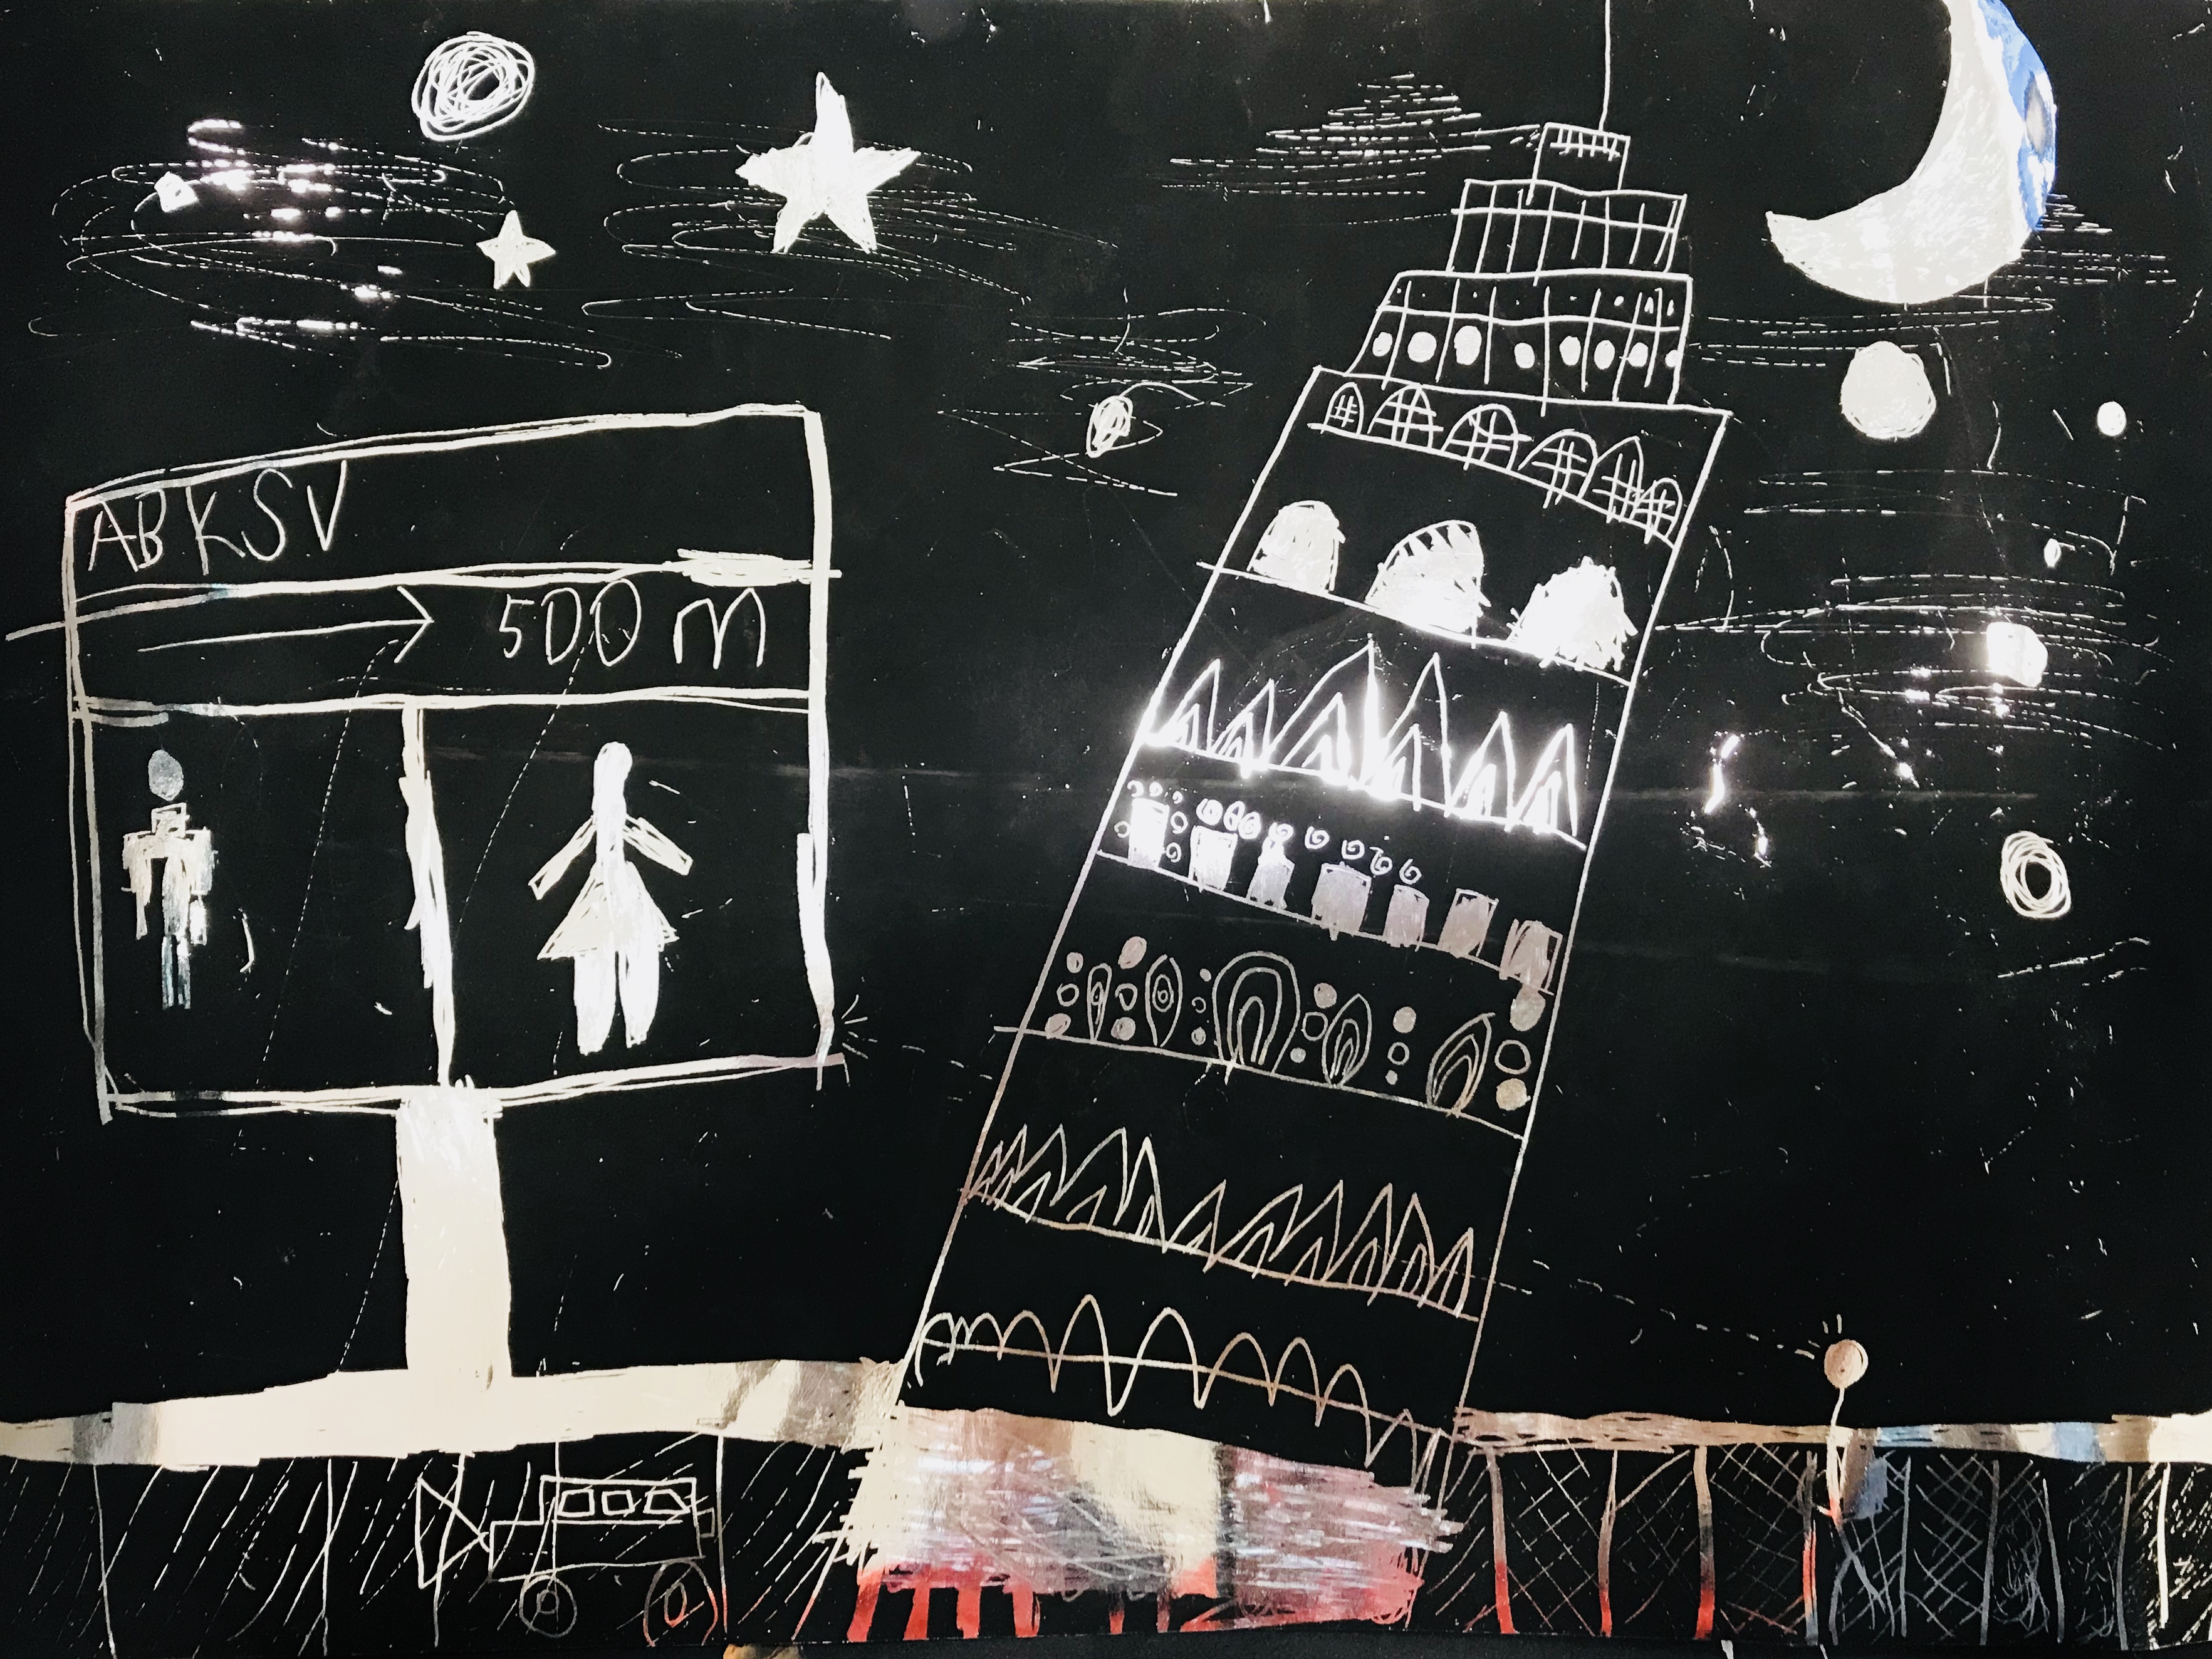 ABKSV
→ 500 m